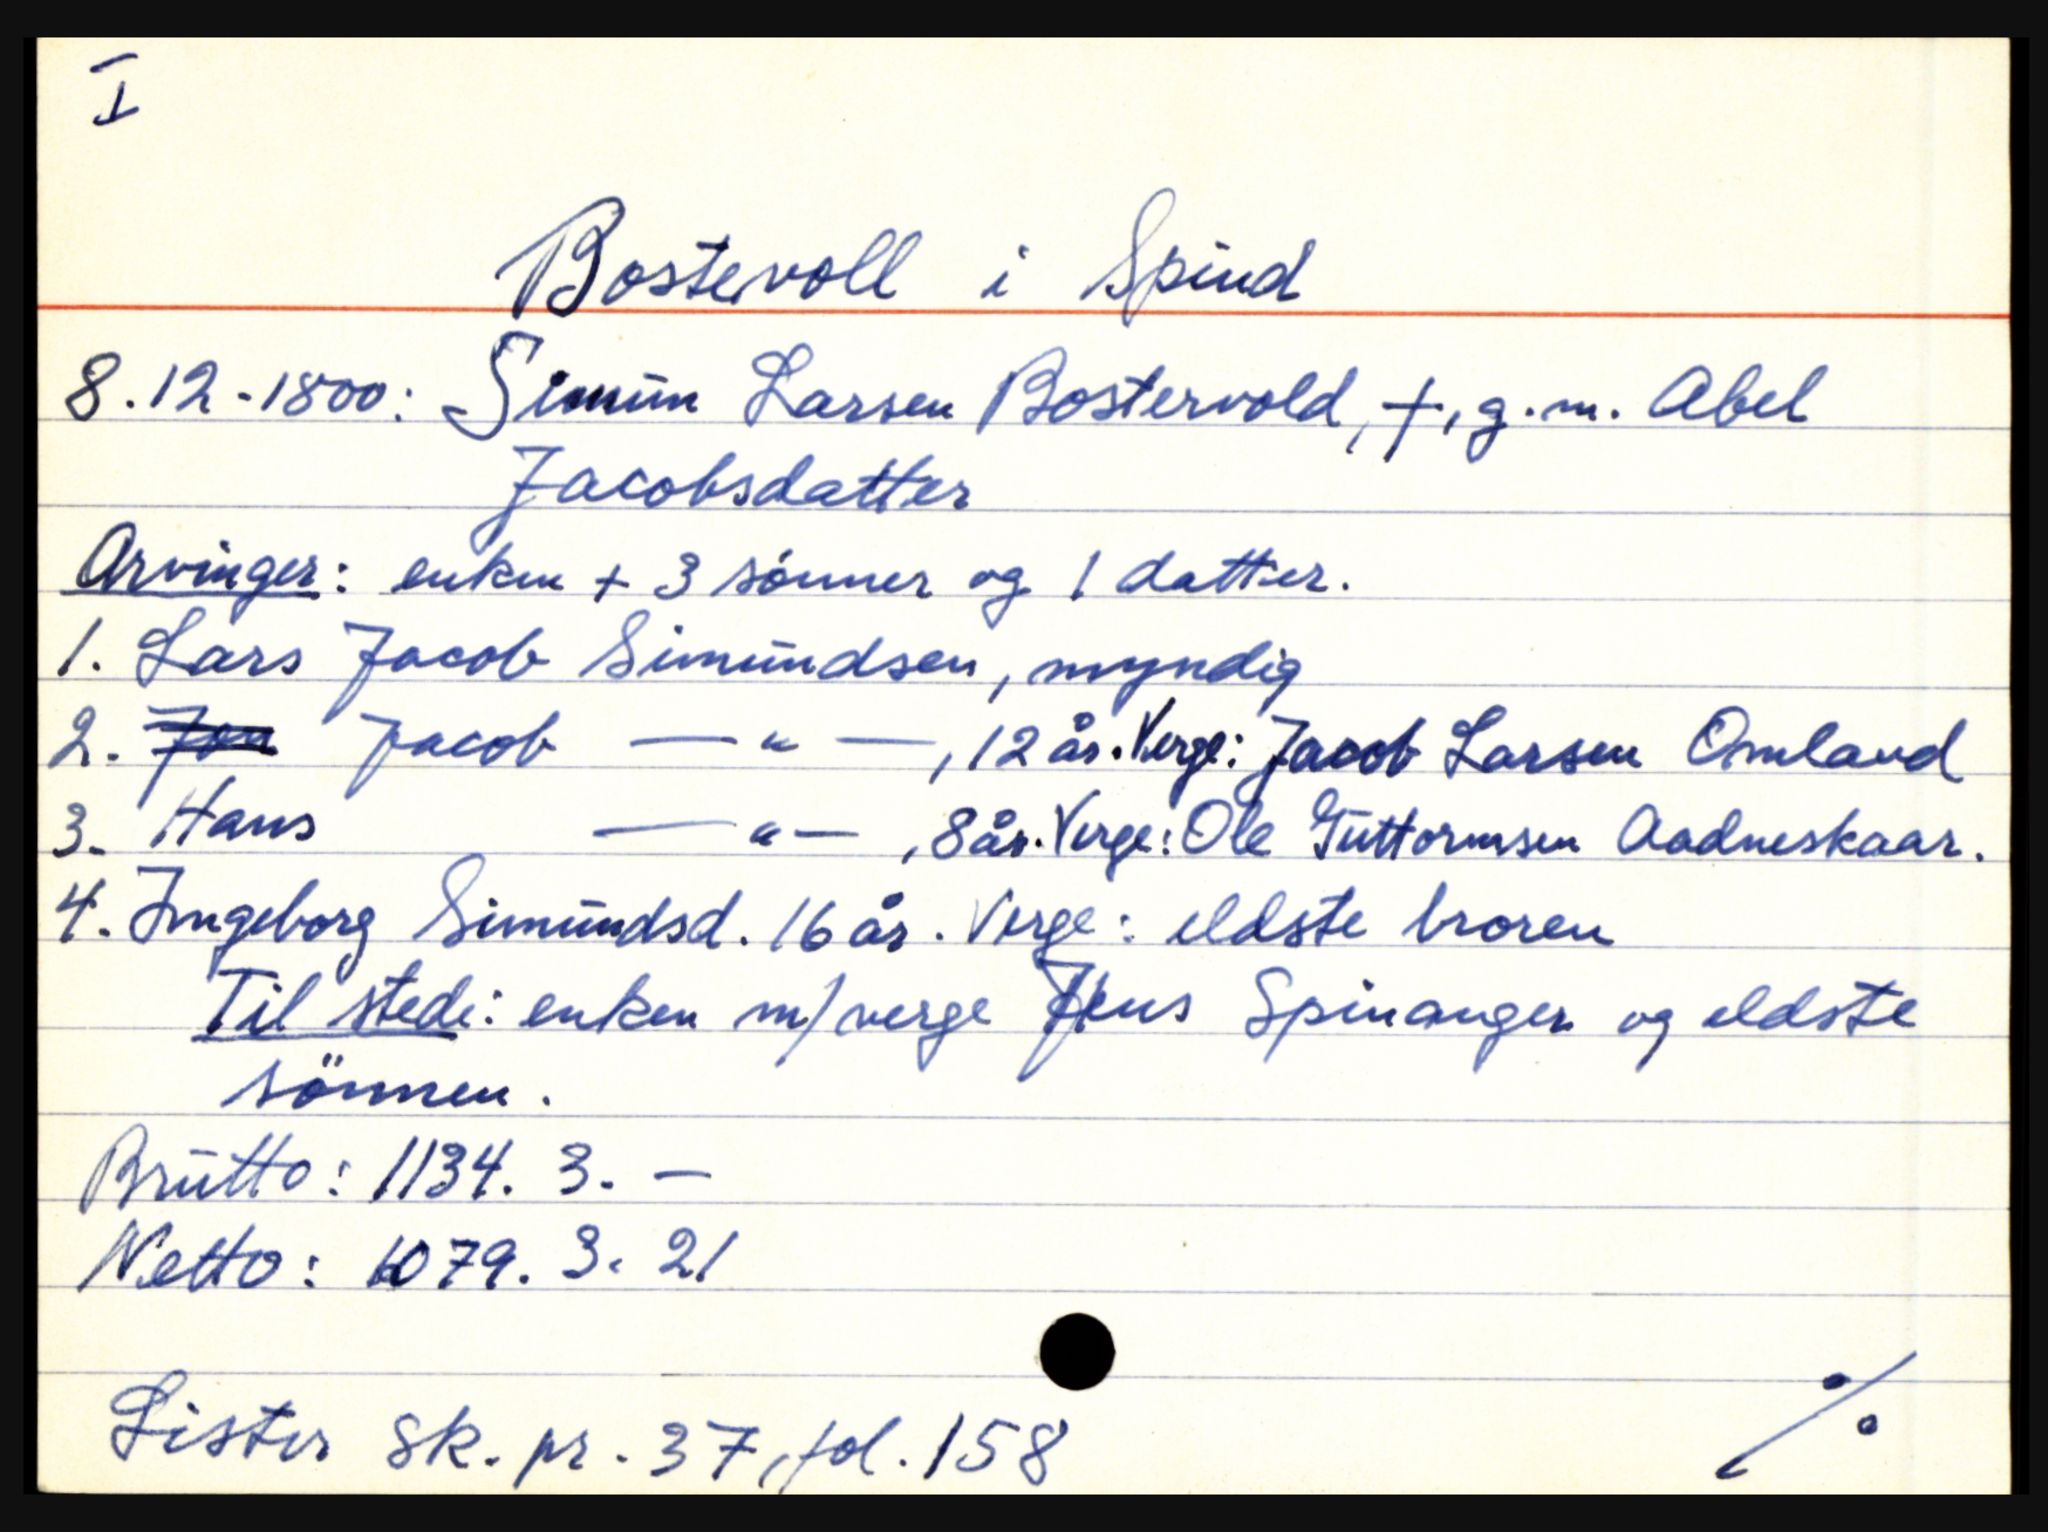 I
Bostevoll i Spind
8.12-1800: Simun Larsen Bostervold, †, g.m. Abel
Jacobsdatter
Arvinger: enken + 3 sónner og 1 datter.
1. Lars Jacob Simundsen, myndig
2. Jon Jacob —"—, 12 år. Verge: Jacob Larsen Omland
3. Hans —"—, 8 år. Verge: Ole Guttormsen Aadneskaar.
4. Ingeborg Simundsd. 16 år. Verge: eldste broren
Til stede: enken m/verge Jens Spinanger og eldste
sönnen.
Brutto: 1134. 3. —
Netto: 1079. 3. 21
Lister sk. pr. 37, fol. 158
./.